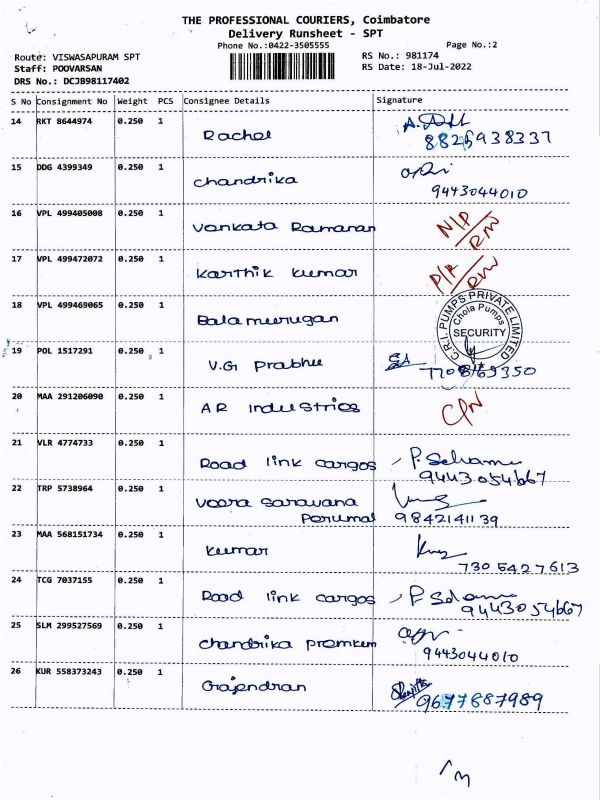 THE PROFESSIONAL COURIERS, Coimbatore
Delivery Runsheet - SPT
Phone No.:0422-3505555 Page No.:2
Route: VISWASAPURAM SPT RS No.: 981174
Staff: POOVARSAN RS Date: 18-Jul-2022
DRS No.: DCJB98117402
S No Consignment No Weight PCS Consignee Details Signature
14 RKT 8644974 0.250 1 Rachel 8825938337
15 DDG 4399349 0.250 1 chandrika 9443044010
16 VPL 499405008 0.250 1 Vankata Ramanan N/P RW
17 VPL 499472072 0.250 1 Karthik Kumar P/R RW
18 VPL 499469065 0.250 1 Balamurugan C.R.I. PUMPS PRIVATE LIMITED Chola Pumps SECURITY
19 POL 1517291 0.250 1 V.G Prabhu
20 MAA 291206090 0.250 1 AR Industries
21 VLR 4774733 0.250 1 Road link cargos 9443054667
22 TRP 5738964 0.250 1 Veera Saravana
Perumal 9842141139
23 MAA 568151734 0.250 1 Kumar 7305427613
24 TCG 7037155 0.250 1 Road link cargos 9443054667
25 SLM 299527569 0.250 1 chandrika premkum 9443044010
26 KUR 558373243 0.250 1 Gajendran 9677887989